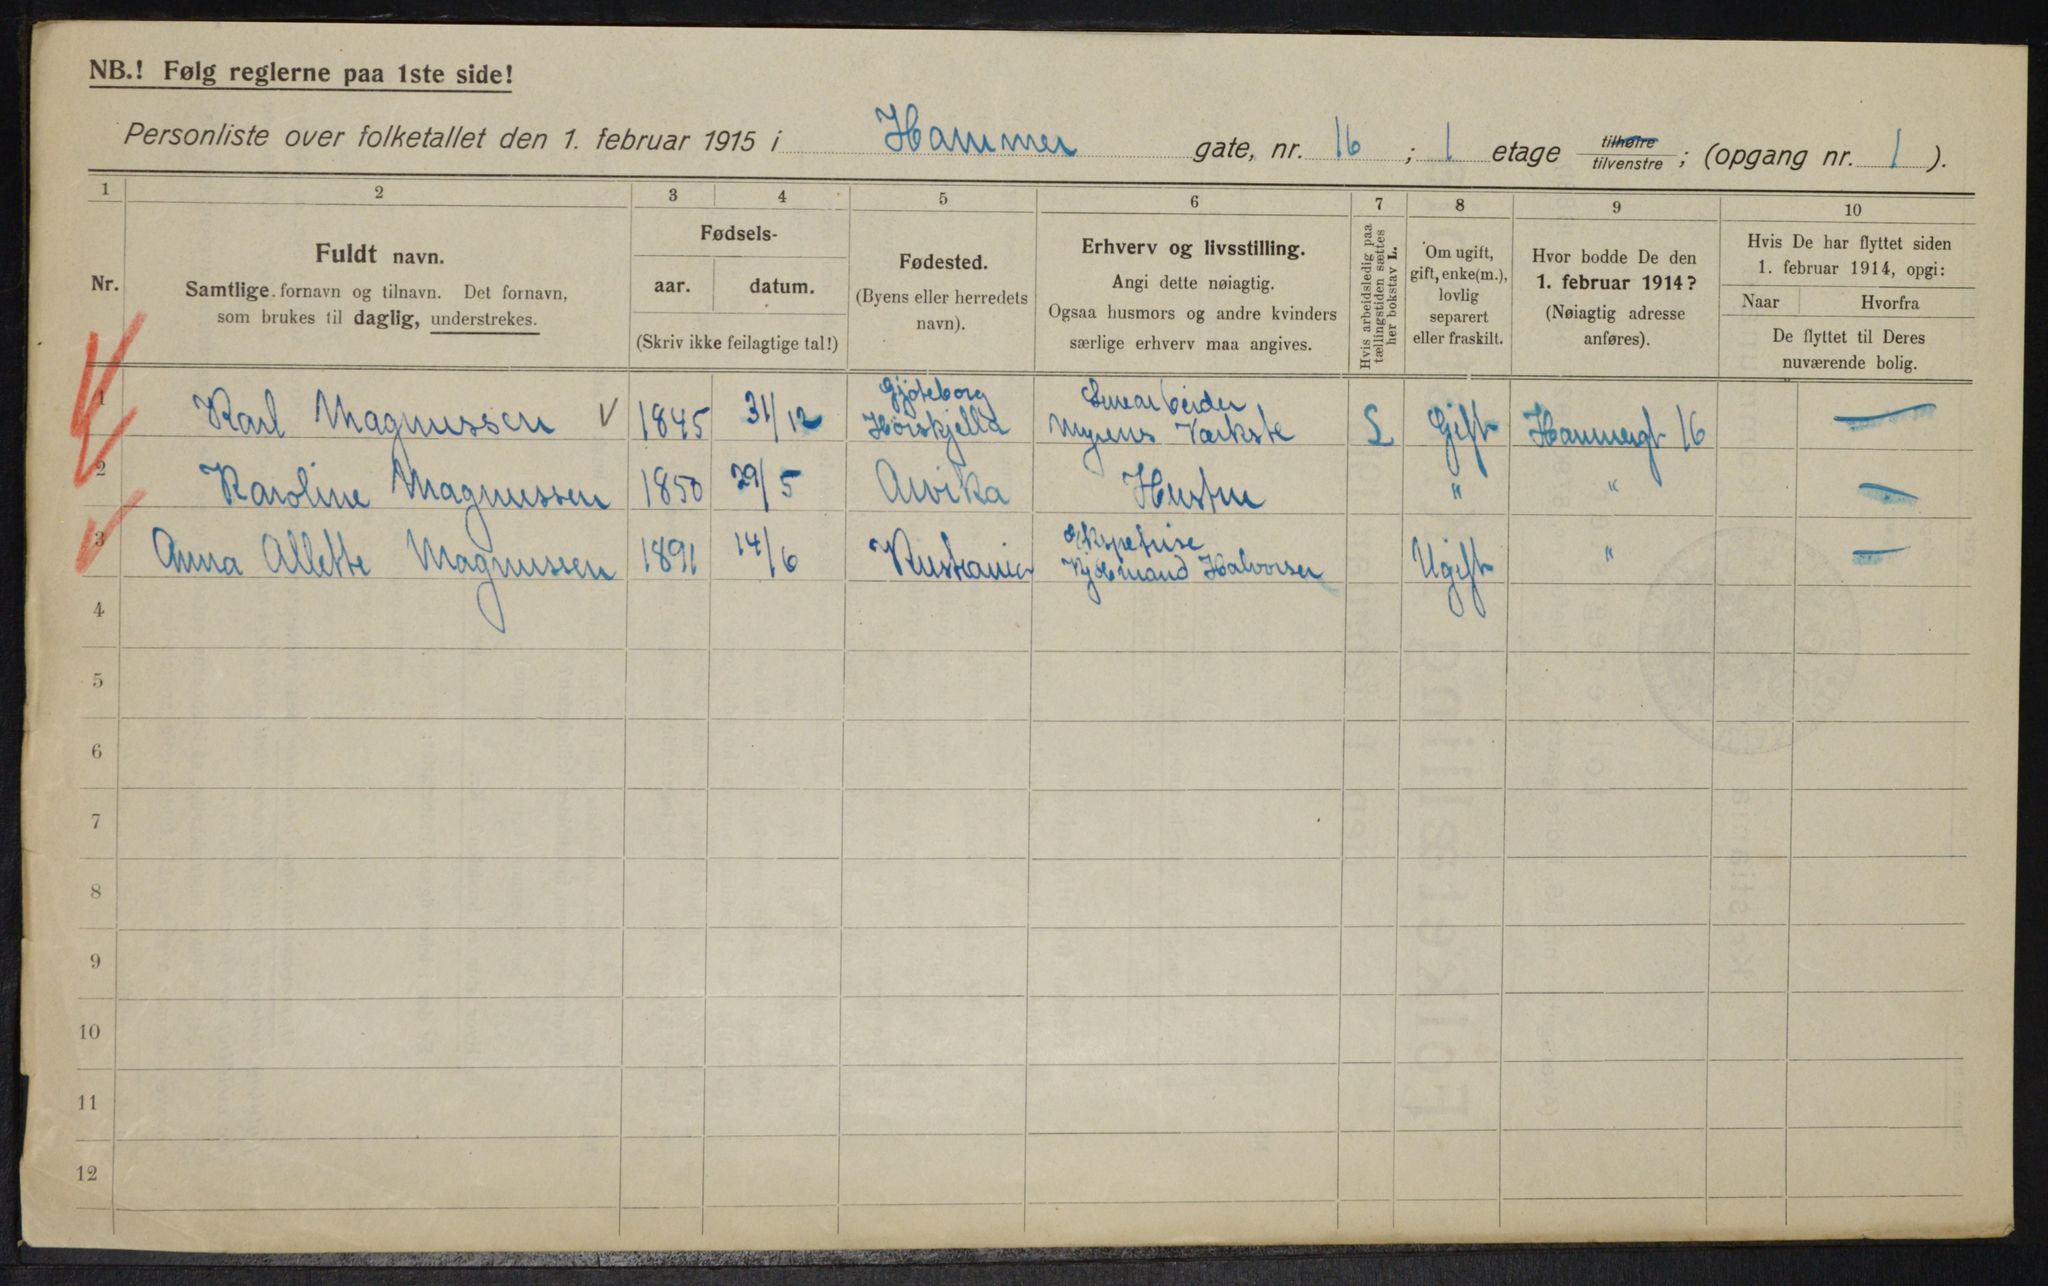 NB.! Følg reglerne paa 1ste side!
Personliste over folketallet den 1. februar 1915 i Hammer gate, nr. 16 ; 1 etage tilhøire tilvenstre ; (opgang nr. 1 ).
1 2 3 4 5 6 7 8 9 10
Nr.
Fuldt navn.
Samtlige fornavn og tilnavn. Det fornavn,
som brukes til daglig, understrekes.
Fødsels-
aar. datum.
(Skriv ikke feilagtige tal!)
Fødested.
(Byens eller herredets
navn).
Erhverv og livsstilling.
Angi dette nøiagtig.
Ogsaa husmors og andre kvinders
særlige erhverv maa angives.
Hvis arbeidsledig paa
tællingstiden sættes
her bokstav L.
Om ugift,
gift, enke(m.),
lovlig
separert
eller fraskilt.
Hvor bodde De den
1. februar 1914?
(Nøiagtig adresse
anføres).
Hvis De har flyttet siden
1. februar 1914, opgi:
Naar Hvorfra
De flyttet til Deres
nuværende bolig.
Gjøteborg
1 Karl Magnussen V 1845 31/12 Myrens Værkste L Gift Hammergt 16 —
2 Karoline Magnussen 1850 29/5 Arvika Hustru " " —
3 Anna Allette Magnussen 1891 14/6 Kristiania Kjøbmand Halvorsen Ugift " —
4
5
6
7
8
9
10
11
12